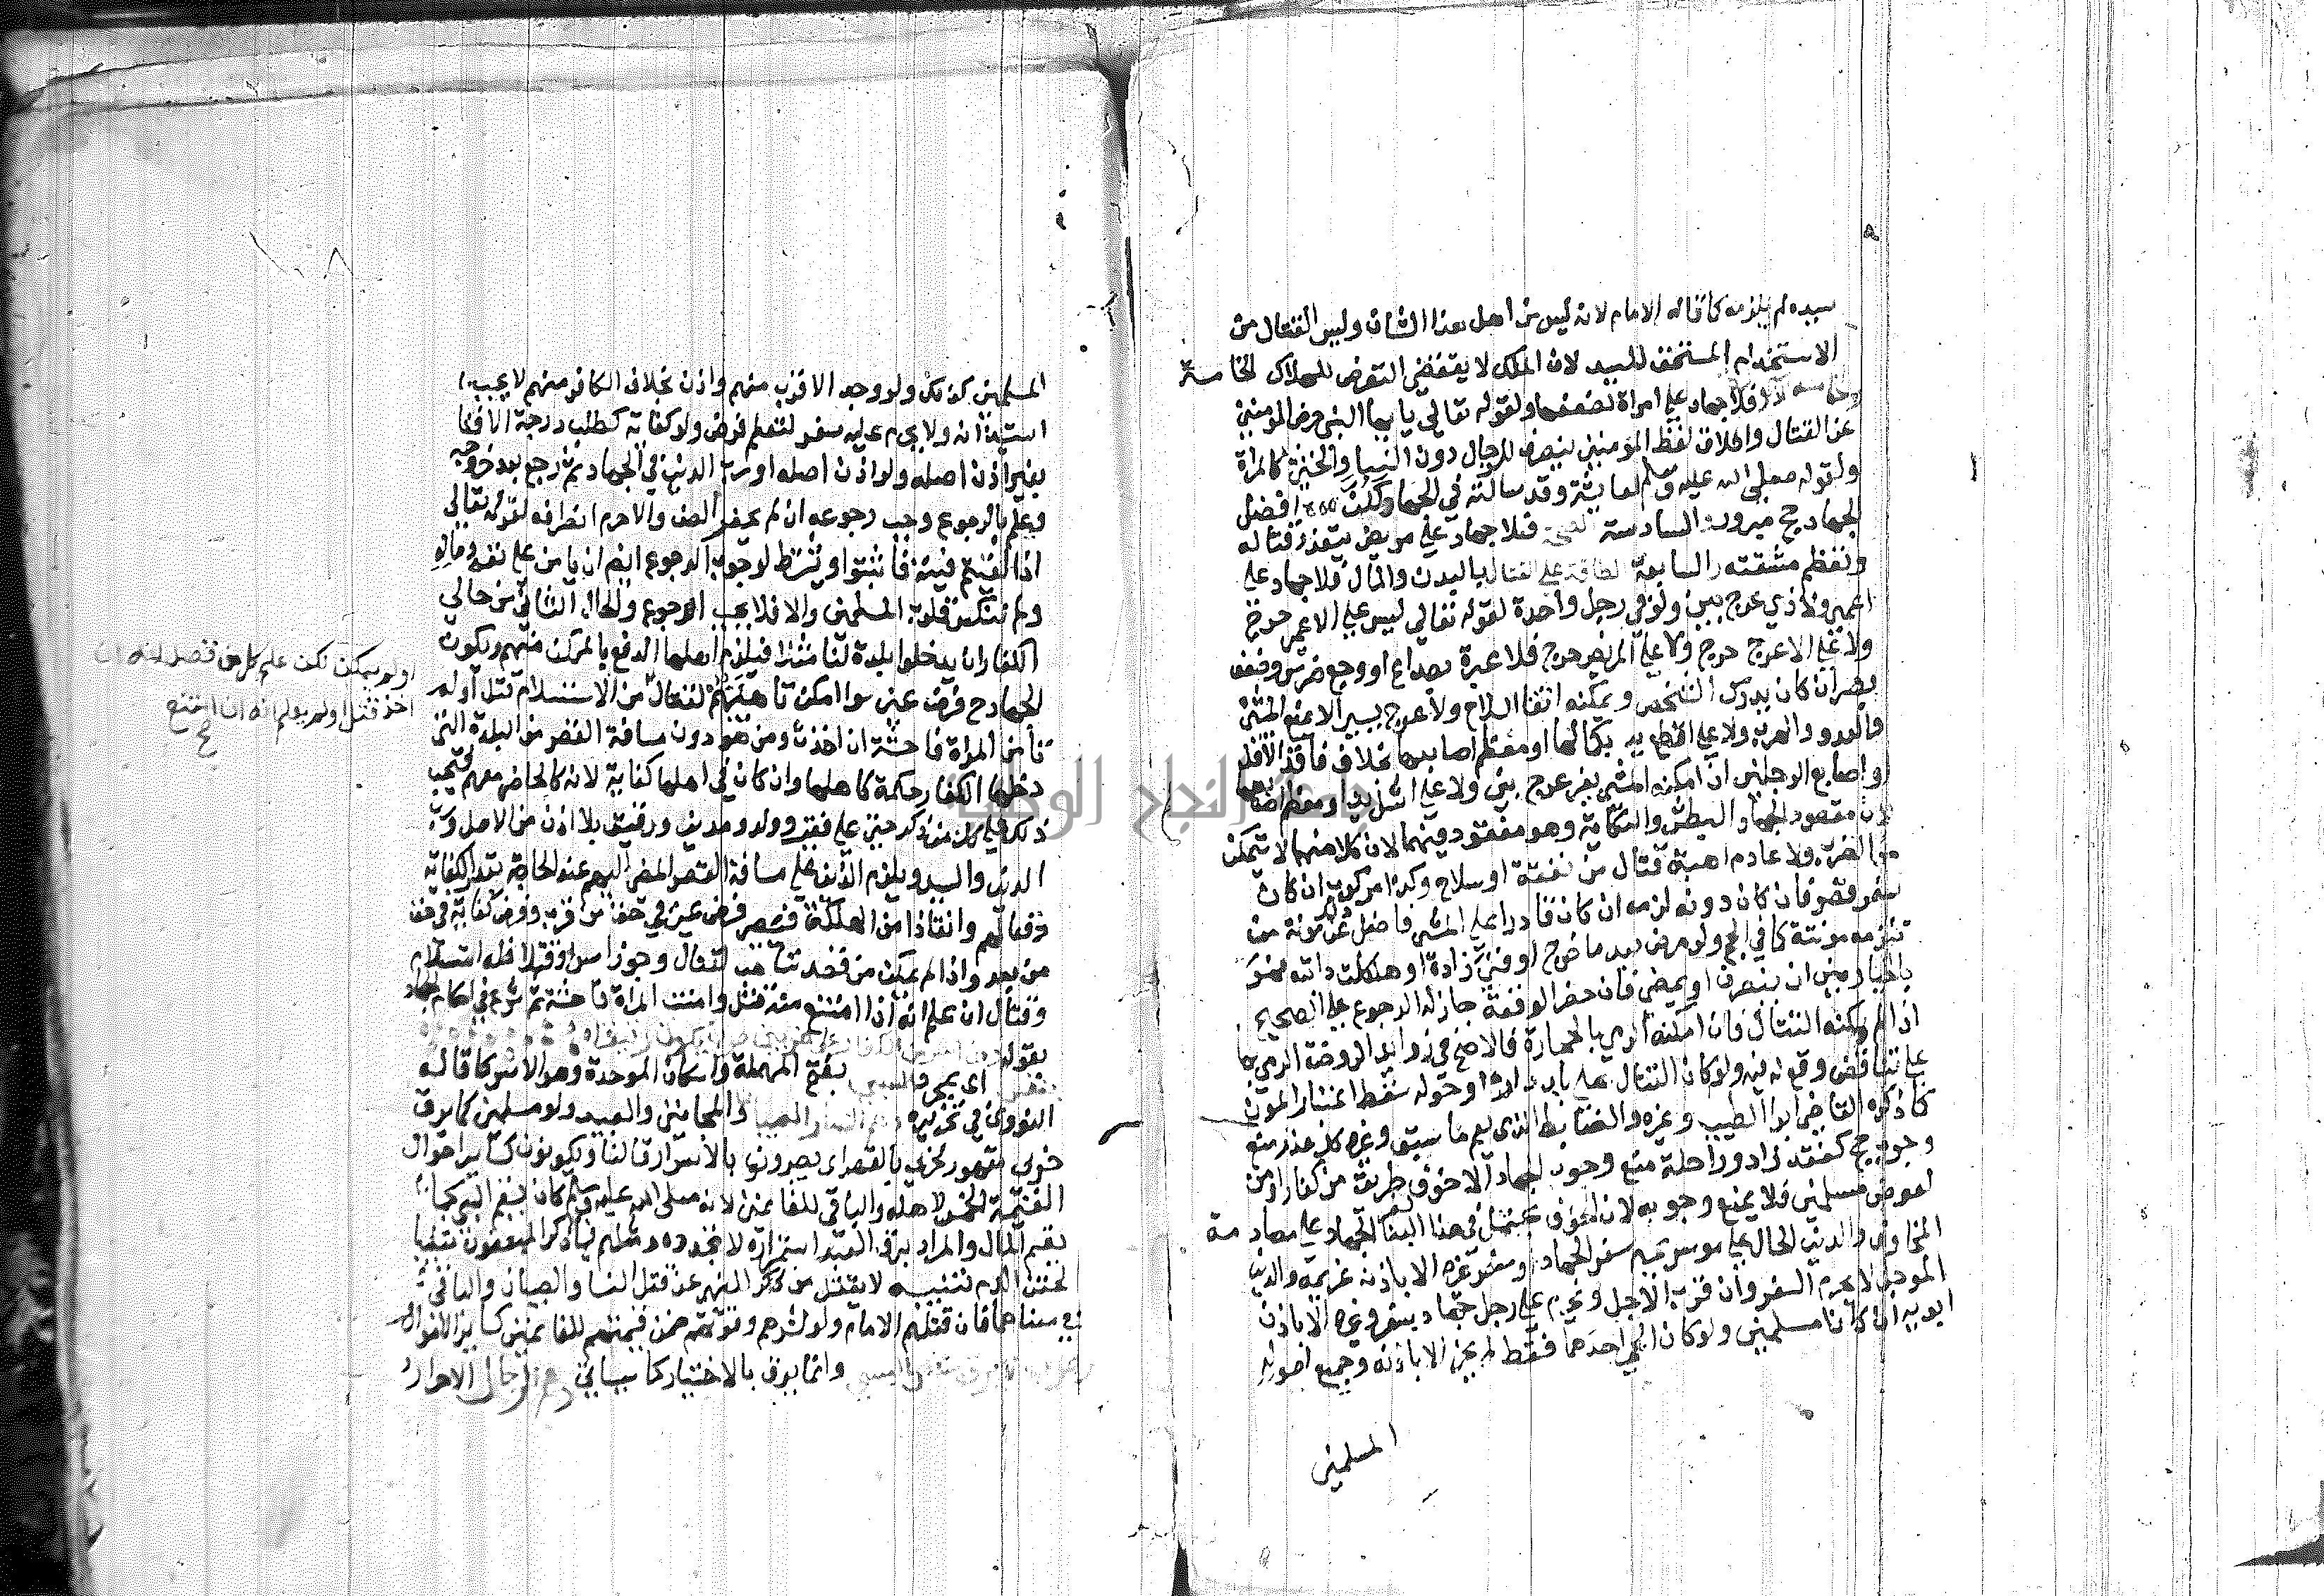 سيده لم يلزمه كما قاله الامام لانه ليس من أهل هذا الشان وليس القتال من
الاستخدام المستحق للسيد لان الملك لا يقتضي التعرض للهلاك الخامسة
فلا جهاد على امراة لضعفها ولقوله تعالى يا ايها النبي حرض المومنين
على القتال واطلاق لفظ المومنين ينصرف للرجال دون النسا والخنثى كالمراة
ولقوله صلى الله عليه وسلم لعايشة وقد سالته في الجهاد لكن افضل
الجهاد حج مبرور والسادسة الصحة فلا جهاد على مريض يتعذر قتاله
وتعظم مشقته والسابعة الطاقة على القتال بالبدن والمال فلا جهاد على
اعمى ولا ذي عرج بين ولو في رجل واحدة لقوله تعالى ليس على الاعمى حرج
ولا على الاعرج حرج ولا على المريض حرج فلا عبرة بصداع او وجع ضرس وضعف
بصر ان كان يدرك الشخص ويمكنه اتقا السلاح ولا عرج يسير لا يمنع المشي
والعدو والهرب ولا على اقطع يد بكمالها او معظم اصابعها بخلاف فاقد الاقل
او اصابع الرجلين ان امكنه المشي بغير عرج بين ولا على اشل يد او معظم اصابعها
لان مقصود الجهاد البطش والنكاية وهو مفقود فيهما لان كلا منهما لا يتمكن
من الضرب ولا عادم اهبة قتال من نفقة او سلاح وكذا مركوب ان كان
سفر قصر فان كان دونه لزمه ان كان قادرا على المشي فاضل ذلك عن مونة من
تلزمه مونته كما في الحج ولو مرض بعد ما خرج او فني زاده او هلكت دابته فهو
بالخيار بين ان ينصرف او يمضي فان حضر الوقعة جاز له الرجوع على الصحيح
اذا لم يمكنه القتال فان امكنه الرمي بالحجارة فالاصح في زوايد الروضة الرمي بها
على تناقض وقع له فيه ولو كان القتال على باب داره او حوله سقط اعتبار المون
كما ذكره القاضي ابو الطيب وغيره والضابط الذي يعم ما سبق وغيره كل عذر منع
وجوب حج كفقد زاد وراحلة منع وجوب الجهاد الا خوف طريق من كفار او من
لصوص مسلمين فلا يمنع وجوبه لان الخوف يحتمل في هذا السفر لبنا الجهاد على مصادمة
المخاوف والدين الحال على موسر يحرم سفر الجهاد وسفر غيره الا باذن غريمه والدين
الموجل لا يحرم السفر وان قرب الاجل ويحرم على رجل جهاد بسفر وغيره الا باذن
ابويه ان كانا مسلمين ولو كان الحي احدهما فقط لم يجز الا باذنه وجميع اصوله
المسلمين
المسلمين كذلك ولو وجد الاقرب منهم واذن بخلاف الكافر منهم لا يجب
استيذانه ولا يحرم عليه سفر لتعلم فرض ولو كفاية كطلب درجة الافتا
بغير اذن اصله ولو اذن اصله او رب الدين في الجهاد ثم رجع بعد خروجه
وعلم بالرجوع وجب رجوعه ان لم يحضر الصف والا حرم انصرافه لقوله تعالى
اذا لقيتم فئة فاثبتوا ويشترط لوجوب الرجوع ايضا ان يامن على نفسه وماله
ولم تنكسر قلوب المسلمين والا فلا يجب الرجوع والحال الثاني من حالي
الكفار ان يدخلوا بلدة لنا مثلا فيلزم اهلها الدفع بالممكن منهم ويكون
الجهاد ح فرض عين سوا امكن تاهبهم لقتال من الاستسلام قتل او لم
تامن المراة فاحشة ان اخذت ومن هو دون مسافة القصر من البلدة التي
دخلها الكفار حكمه كاهلها وان كان في اهلها كفاية لانه كالحاضر معهم فيجب
ذلك على كل من ذكر حتى على فقير وولد ومدين ورقيق بلا اذن من الاصل ورب
الدين والسيد ويلزم الذين على مسافة القصر المضي اليهم عند الحاجة بقدر الكفاية
دفعا لهم وانقاذا من الهلكة فيصير فرض عين في حق من قرب وفرض كفاية في حق
من بعد واذا لم يمكن من قصد تاهب لقتال وجوز اسرا وقتلا فله استسلام
وقتال ان علم انه اذا امتنع منه قتل وامنت المراة فاحشة ثم شرع في احكام الجهاد
بقوله
اي يجر والسبي بفتح المهملة واسكان الموحدة وهو الاسر كما قاله
النووي في تحريره وهم النسا والصبيان والمجانين والعبيد ولو مسلمين كما يرق
حربي مقهور لحربي بالقهر اي يصيرون بالاسر ارقا لنا ويكونون كساير اموال
الغنيمة الخمس لاهله والباقي للغانمين لانه صلى الله عليه وسلم كان يقسم السبي كما
يقسم المال والمراد برق العبد استمراره لا تجدده ومثلهم فيما ذكر المبعضون تغليبا
لحقن الدم تنبيه لا يقتل من ذكر للنهي عن قتل النسا والصبيان والباقي
في معناهما فان قتلهم الامام ولو لشرهم وقوتهم ضمن قيمتهم للغانمين كساير الاموال
وانما يرق بالاختيار كما سياتي وهم الرجال الاحرار
او لم يمكن لكن علم كل من قصد انه ان
اخذ قتل او لم يعلم انه ان امتنع
صح
جامعة النجاح الوطنية